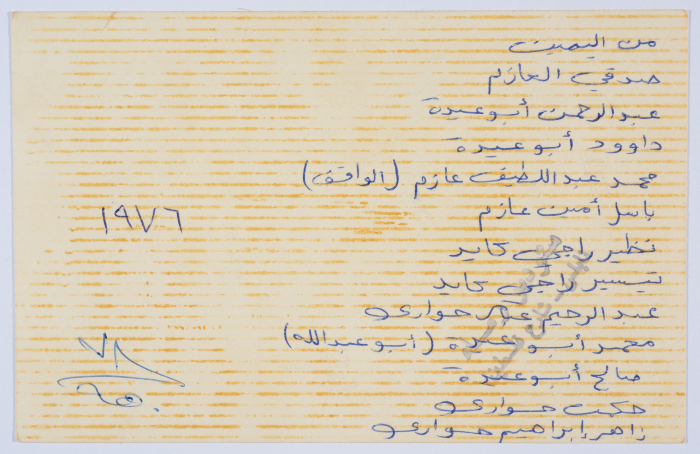 من اليمين
صدقي العازم
عبدالرحمن أبوعيدة
داوود أبوعيدة
محمد عبداللطيف عازم (الواقف)
باسل أمين عازم
نظير راجي كايد
تيسير راجي كايد
عبدالرحيم حواري
محمد أبوعيدة (أبوعبدالله)
صالح أبوعيدة
حكمت حواري
زاهر إبراهيم حواري
١٩٧٦